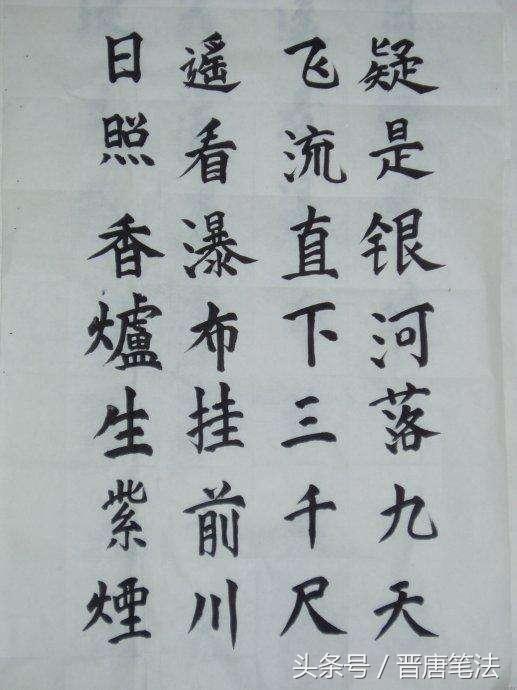 日照香爐生紫煙
遥看瀑布挂前川
飞流直下三千尺
疑是银河落九天
头条号 / 晋唐笔法